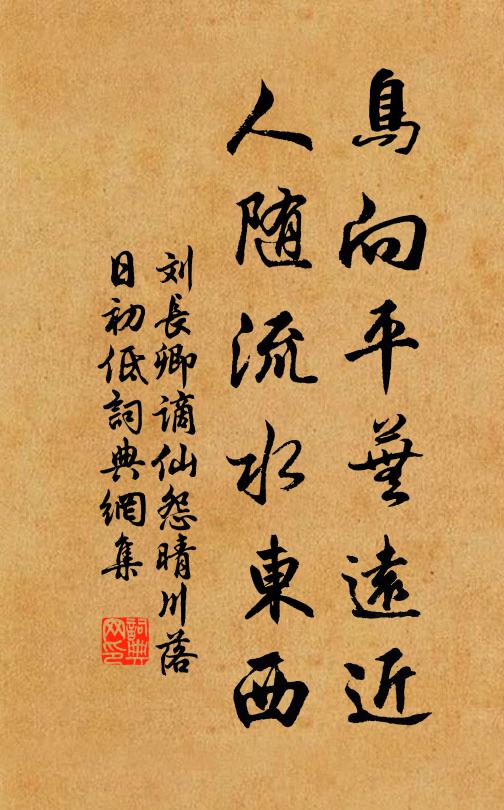 鳥向平蕪遠近
人随流水東西
刘長卿謫仙怨晴川落
日初低詞典網集
詞典
网印